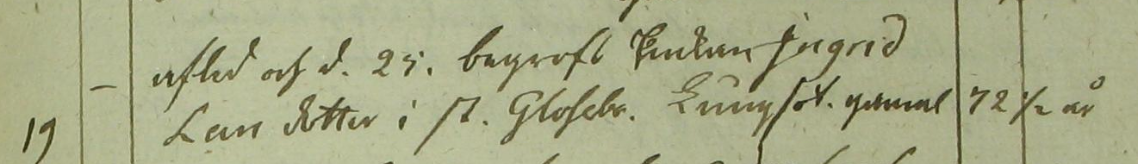 – afled och d. 25. begrofs Enkan Ingrid
19 Lars dotter i st. Glosebo. Lungsot. gammal 72 ½ år